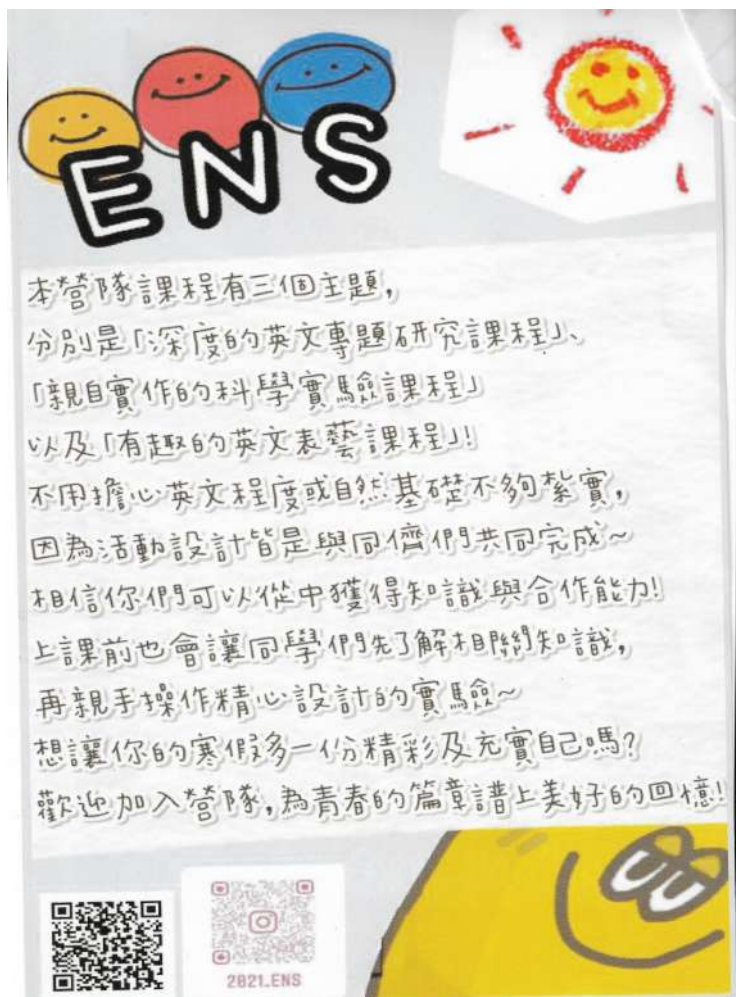 ENS
本營隊課程有三個主題,
分別是「深度的英文專題研究課程」、
「親自實作的科學實驗課程」
以及「有趣的英文表藝課程」!
不用擔心英文程度或自然基礎不夠紮實,
因為活動設計皆是與同儕們共同完成~
相信你們可以從中獲得知識與合作能力!
上課前也會讓同學們先了解相關知識,
再親手操作精心設計的實驗~
想讓你的寒假多一份精彩及充實自己嗎?
歡迎加入營隊,為青春的篇章譜上美好的回憶!
2021.ENS